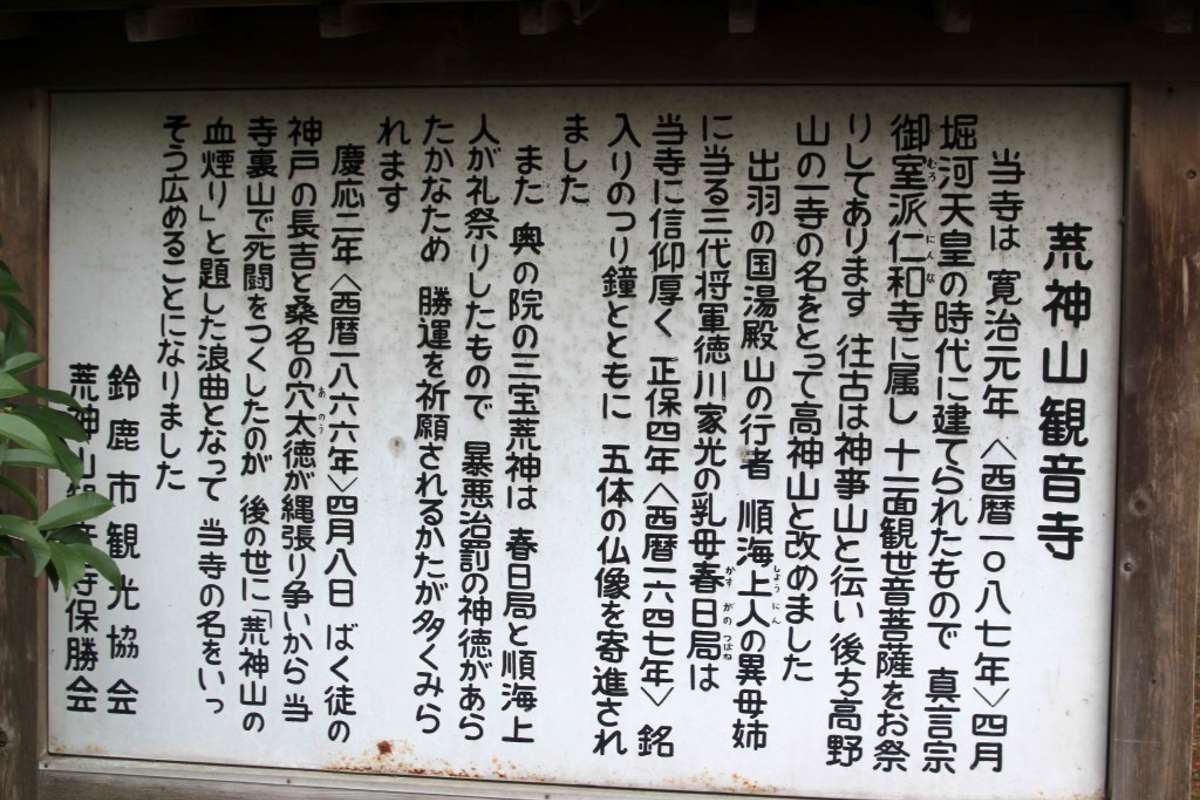 荒神山観音寺
当寺は 寛治元年〈西暦一〇八七年〉四月
堀河天皇の時代に建てられたもので 真言宗
御室派仁和寺に属し 十一面観世音菩薩をお祭
りしてあります 往古は神事山と伝い 後ち高野
山の一寺の名をとって高神山と改めました
出羽の国湯殿山の行者 順海上人の異母姉
に当る三代将軍徳川家光の乳母春日局は
当寺に信仰厚く 正保四年〈西暦一六四七年〉銘
入りのつり鐘とともに 五体の仏像を寄進され
ました
また 奥の院の三宝荒神は 春日局と順海上
人が礼祭りしたもので 暴悪治罰の神徳があら
たかなため 勝運を祈願されるかたが多くみら
れます
慶応二年〈西暦一八六六年〉四月八日 ばく徒の
神戸の長吉と桑名の穴太徳が縄張り争いから 当
寺裏山で死闘をつくしたのが 後の世に「荒神山の
血煙り」と題した浪曲となって 当寺の名をいっ
そう広めることになりました
鈴鹿市観光協会
荒神山観音寺保勝会